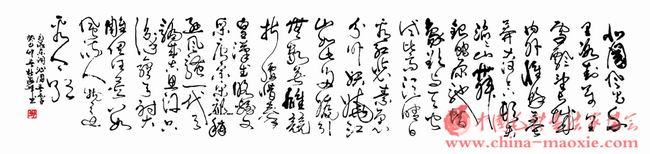 北国风光千
里冰封万里
雪飘望长城
内外惟余莽
莽大河上下顿失
滔滔山舞
银蛇原驰蜡
象欲与天公
试比高须晴日
看红装素裹
分外妖娆江
山如此多娇引
无数英雄竞
折腰惜秦
皇汉武略输文
采唐宗宋祖稍
逊风骚一代天
骄成吉思汗只
识弯弓射大
雕俱往矣数
风流人物还
看今朝
china-maoxie.com